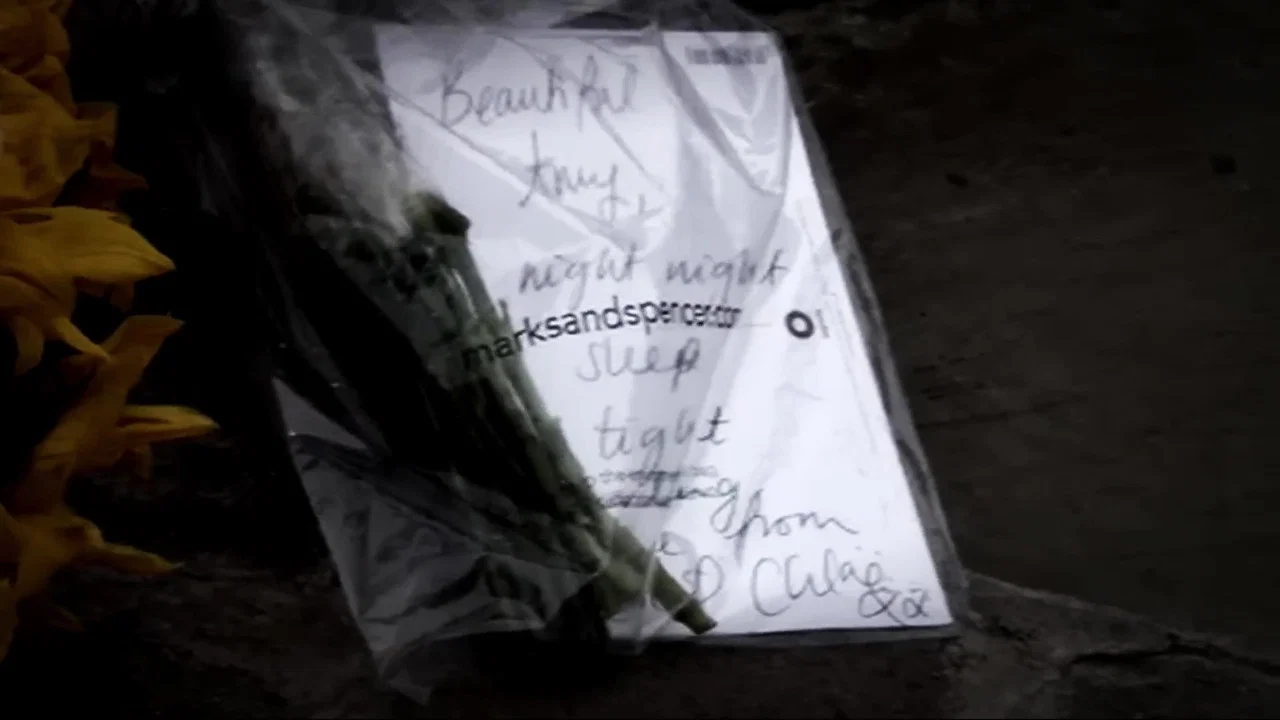 Beautiful
Amy,
night night
marksandspencer.com
sleep
tight
from
Chloë